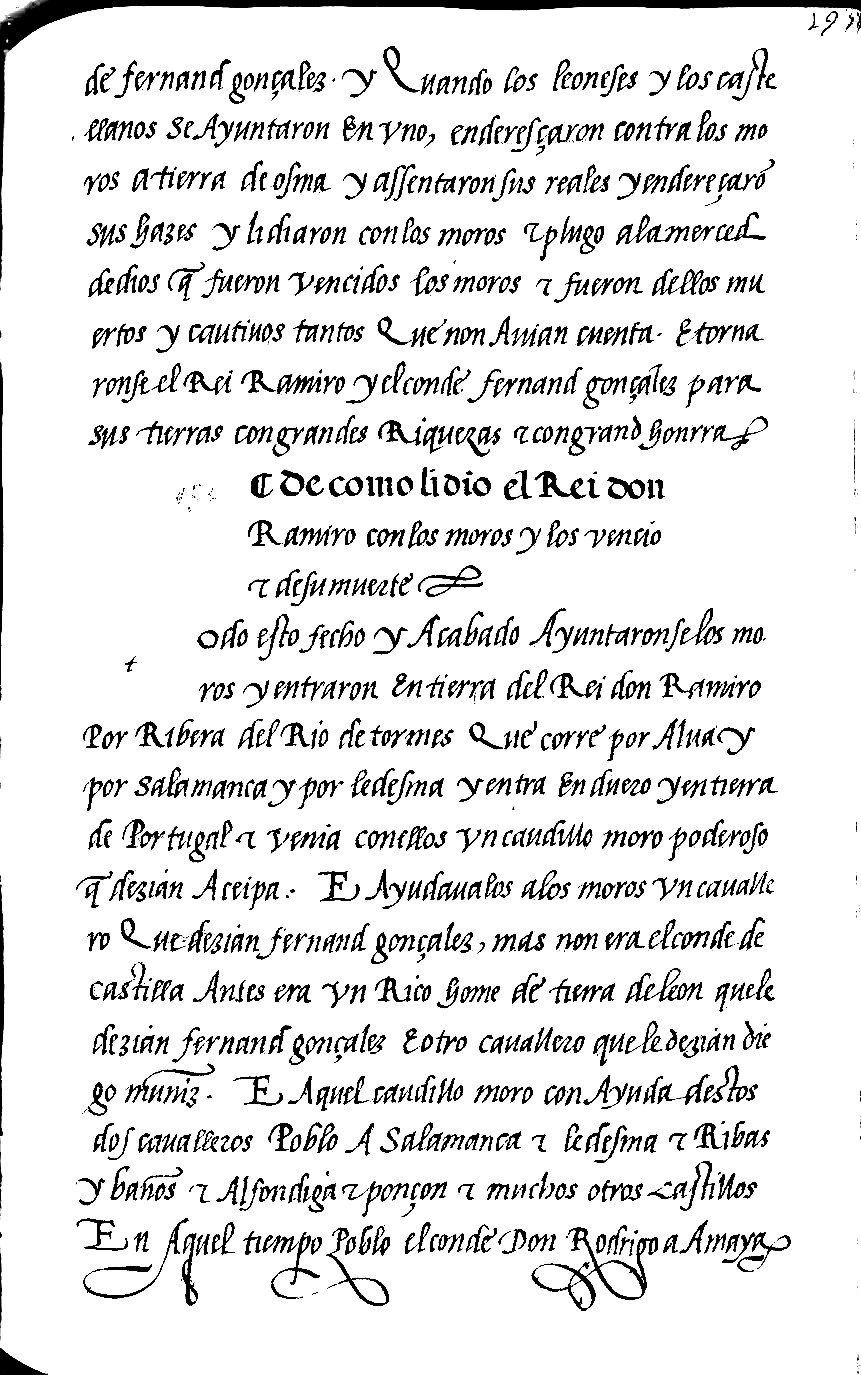 de fernand gonçalez · y Quando los leoneses y los caste
llanos se Ayuntaron En vno, enderesçaron contra los mo
ros a tierra de osma y assentaron sus reales y endereçarõ
sus hazes y lidiaron con los moros τ plugo a la merced
de dios q̃ fueron vencidos los moros τ fueron dellos mu
ertos y cautiuos tantos Que non Auian cuenta · E torna
ronse el Rei Ramiro y el conde fernand gonçalez para
sus tierras con grandes Riquezas τ con grand honrra
¶ De como lidio el Rei don
Ramiro con los moros y los vencio
τ de su muerte
t
odo esto fecho y Acabado Ayuntaronse los mo
ros y entraron En tierra del Rei don Ramiro
Por Ribera del Rio de tormes Que corre por Alua y
por salamanca y por ledesma y entra En duero y en tierra
de Portugal τ venia con ellos vn caudillo moro poderoso
q̃ dezian Aceipa · E Ayudaualos a los moros vn caualle
ro Que dezian fernand gonçalez, mas non era el conde de
castilla Antes era vn Rico home de tierra de leon que le
dezian fernand gonçalez E otro cauallero que le dezian die
go muniz · E Aquel caudillo moro con Ayuda destos
dos caualleros Poblo A salamanca τ ledesma τ Ribas
y baños τ Alfondiga τ ponçon τ muchos otros castillos
En Aquel tiempo Poblo el conde Don Rodrigo a Amaya